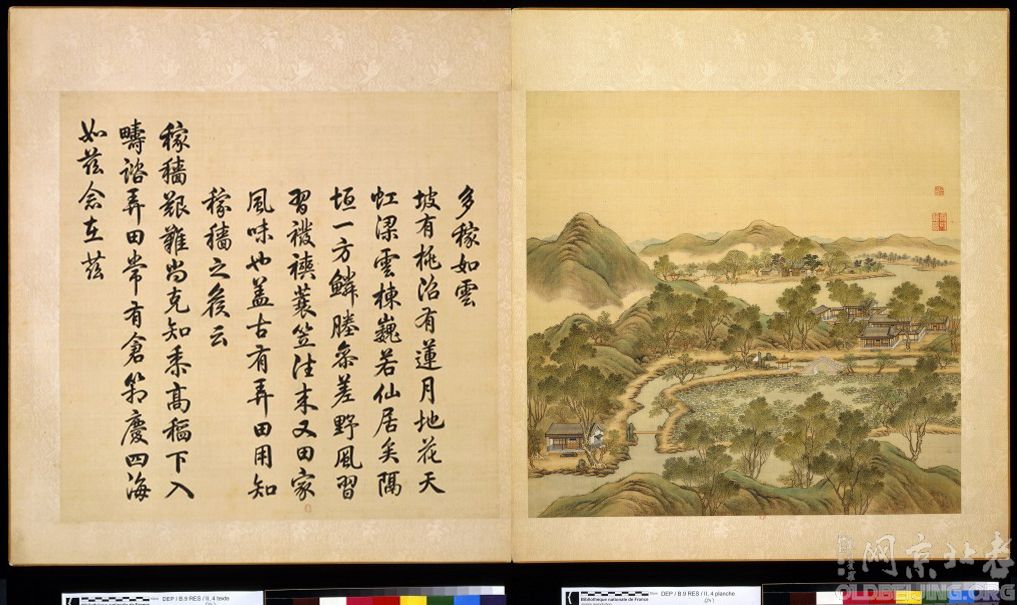 多稼如雲
坡有桃沼有蓮月地花天
虹梁雲棟巍若仙居矣隔
垣一方鱗塍參差野風習
習襏襫蓑笠往來又田家
風味也蓋古有弄田用知
稼穡之候云
稼穡艱難尚克知黍高稻下入
疇諮弄田常有倉箱慶四海
如茲念在茲
DEP / B.9 RES / II. 4 texte
Bibliothèque nationale de France
DEP / B.9 RES / II. 4 planche
老北京网
OLDBEIJING.ORG